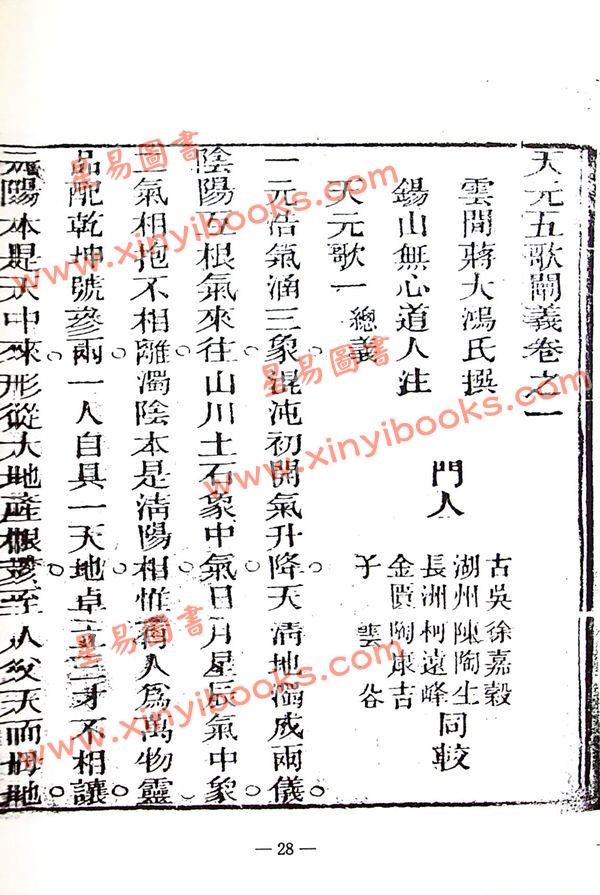 天元五歌闡義卷之一
雲間蔣大鴻氏撰
錫山無心道人注
門人
古吳徐嘉穀
湖州陳陶生
長洲柯遠峰
金匱陶康吉
子雲谷
同較
天元歌一 總義
一元浩氣涵三象混沌初開氣升降天清地濁成兩儀
陰陽互根氣來往山川土石象中氣日月星辰氣中象
二氣相抱不相離濁陰本是清陽相惟有人為萬物靈
品配乾坤號參兩一人自具一天地卓立三才不相讓
元陽本是天中來形從大地產根荄至人父天而母地
星易圖書
www.xinyibooks.com
星易圖書
www.xinyibooks.com
星易圖書
www.xinyibooks.com
— 28 —